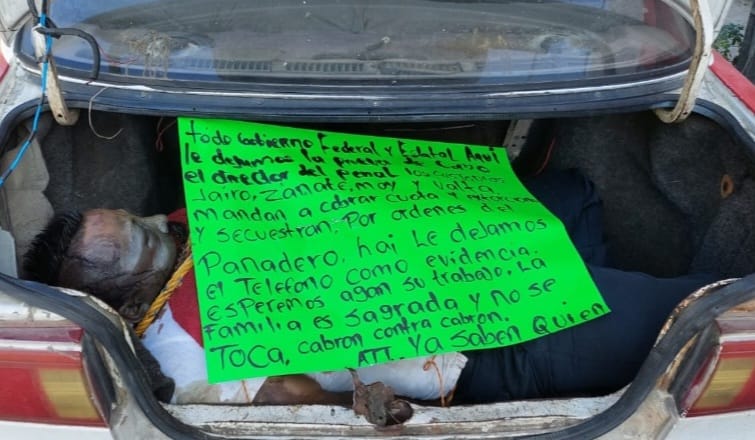 todo Gobierno Federal y Estatal Aquí
le dejamos la prueba de como
el director del Penal los custodios
Jairo, Zanate, moy y Valta
mandan a cobrar cuota y extorcionan
y secuestran, Por ordenes del
Panadero. hai Le dejamos
el Telefono como evidencia.
esperemos agan su trabajo. La
familia es sagrada y no se
TOCA, cabron contra cabron.
ATT. Ya saben Quien